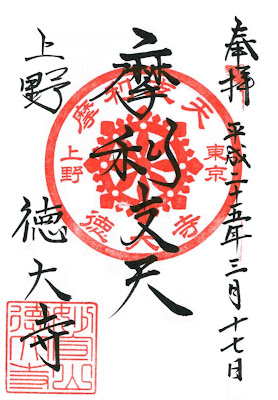 奉拝 平成二十五年三月十七日
摩利支天
上野 徳大寺
摩利支天
東京
上野
徳大寺
妙宣山
徳大寺